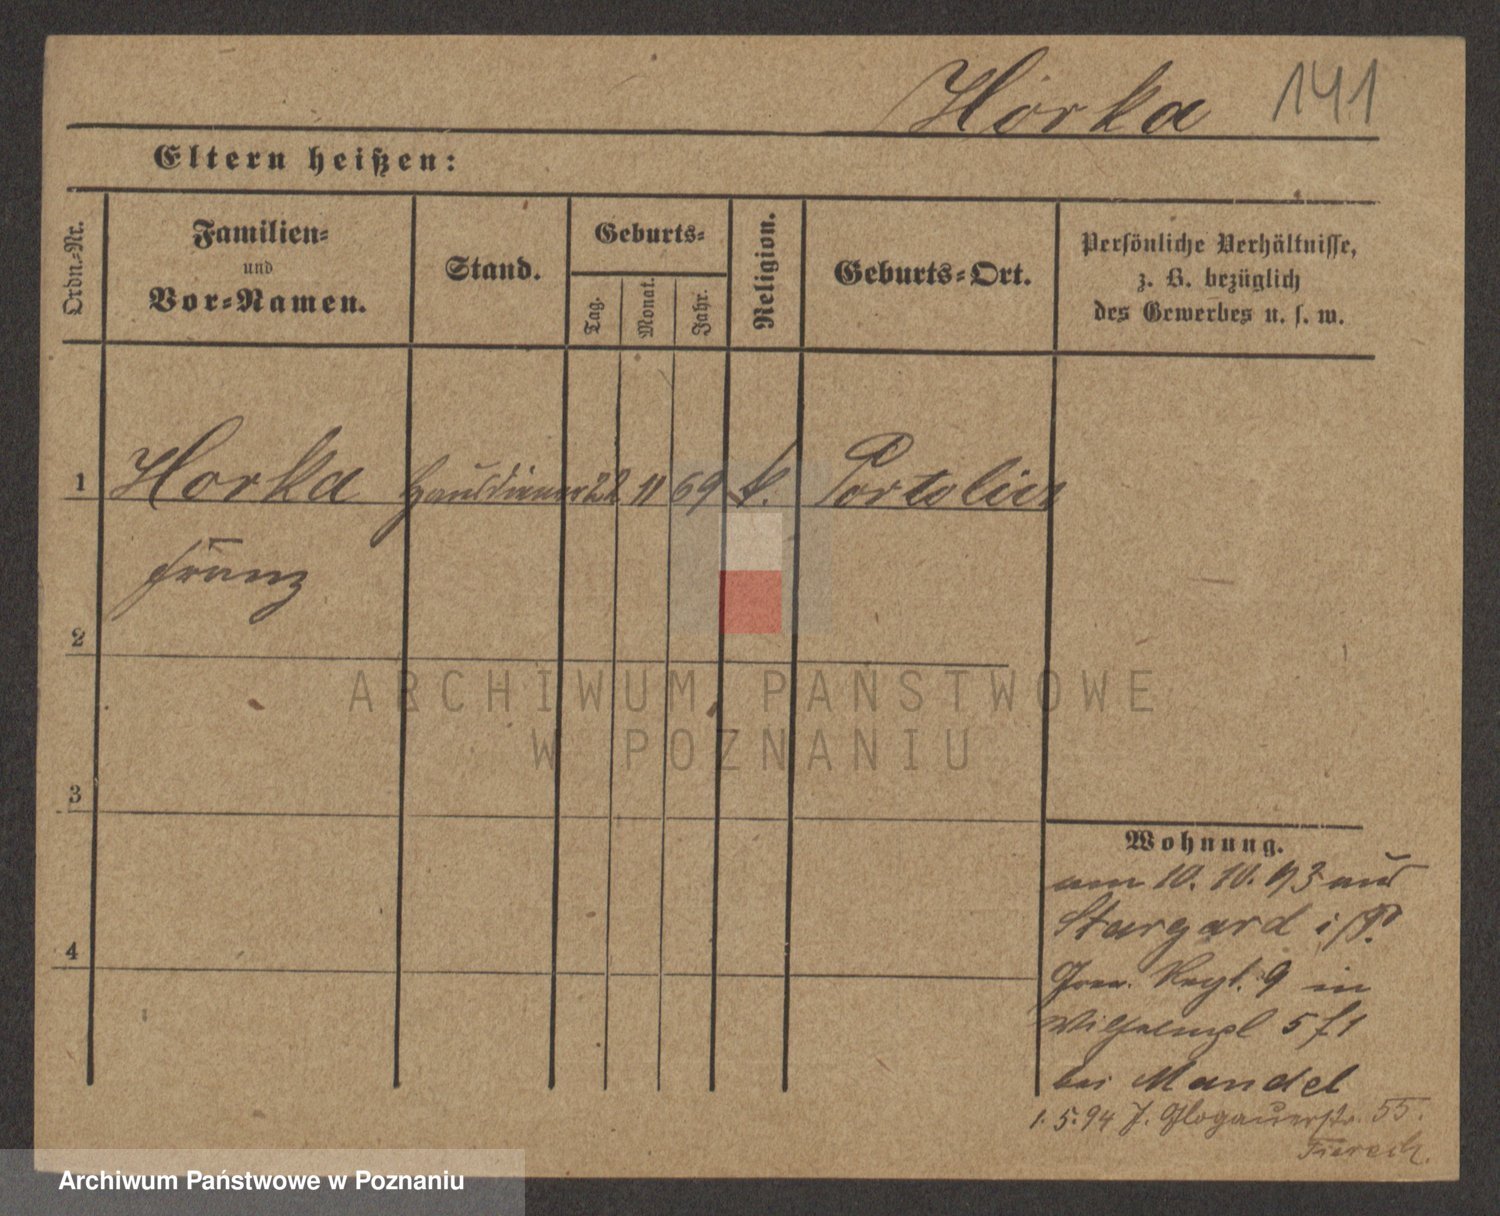 Horka 141
Eltern heißen:
Ordn.-Nr.
Familien-
und
Vor-Namen.
Stand.
Geburts-
Tag.
Monat.
Jahr.
Religion.
Geburts-Ort.
Persönliche Verhältnisse,
z. B. bezüglich
des Gewerbes u. s. w.
1 Horka Hausdiener 22 11 69 k.
Franz
2
3
4
Wohnung.
am 10. 10. 93 aus
Stargard i/P.
Gren. Regt. 9 in
Wilhelmspl 5
bei Mandel
1. 5. 94 J. Glogauerstr. 55.
ARCHIWUM PAŃSTWOWE
W POZNANIU
Archiwum Państwowe w Poznaniu